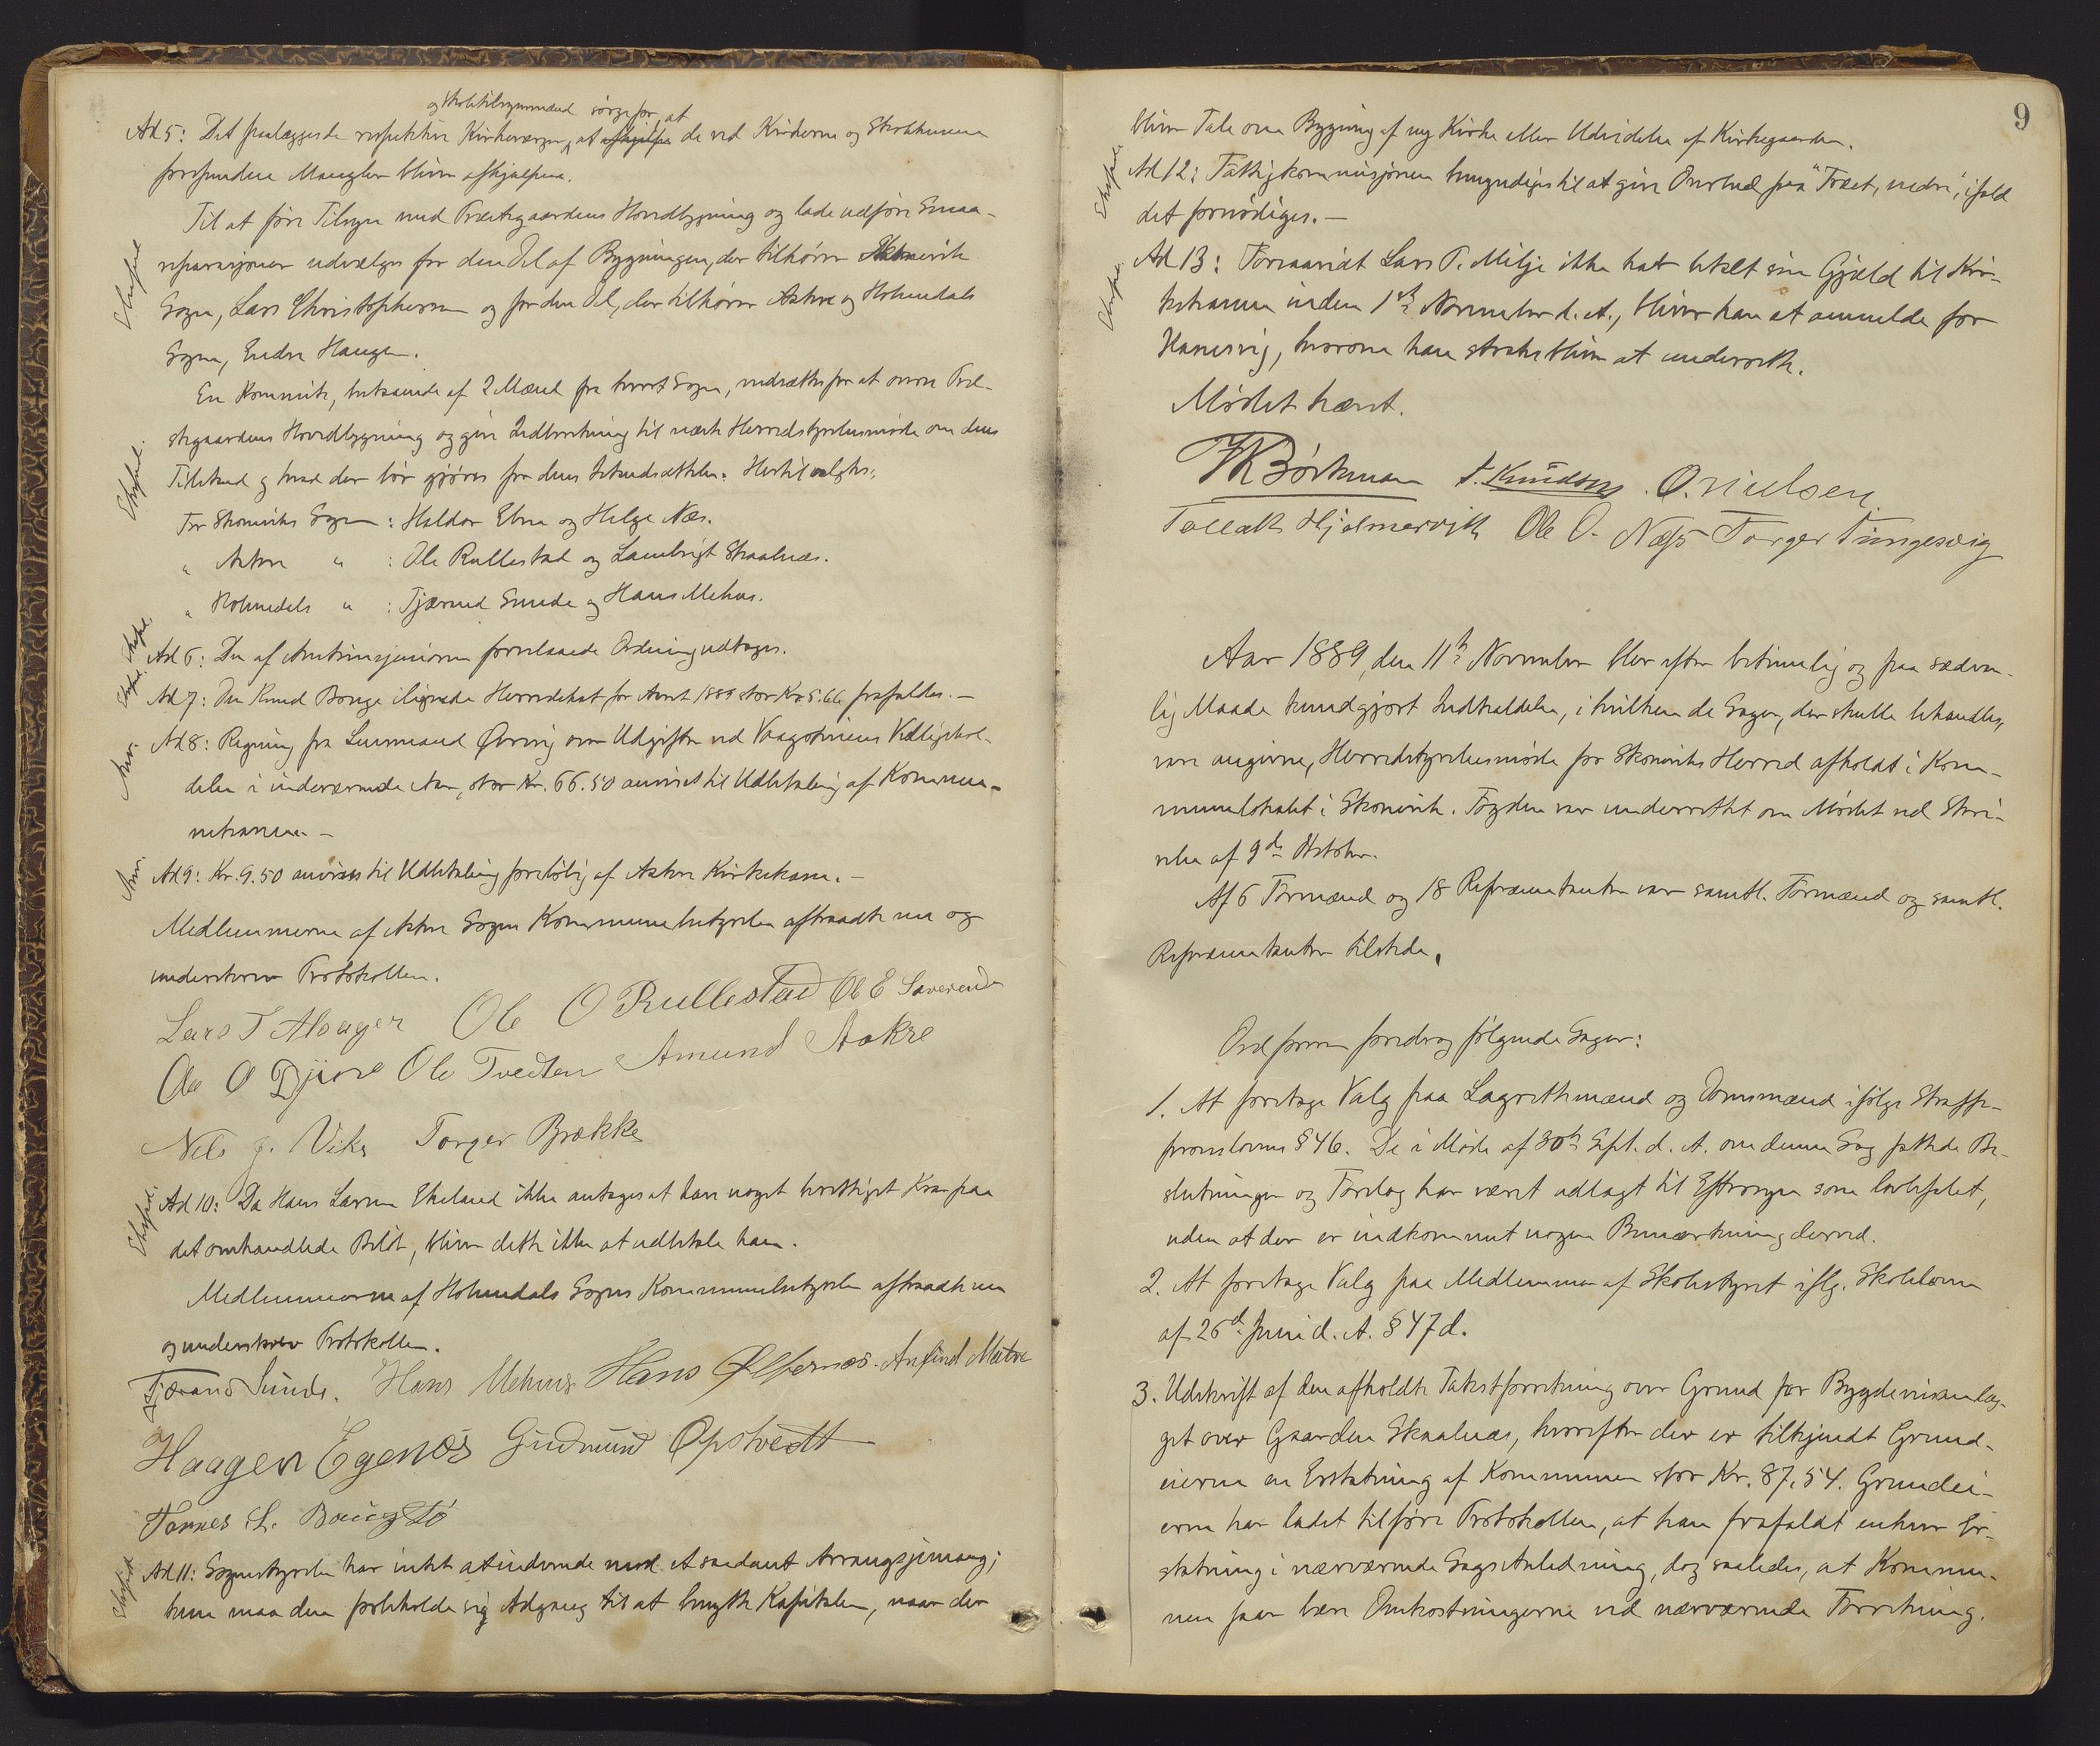 og Skoletilsynsmænd sørge for, at
Ad 5: Det paalægges de respektive Kirkeværger, at afhjælpe de ved Kirkerne og Skolehusene
forefundne Mangler bliver afhjulpne.
Til at føre Tilsyn med Præstegaardens Hovedbygning og lade udføre Smaa-
reparasjoner udvælges for den Del af Bygningen, der tilhører Skonevik
Sogn, Lars Christophersen og for den Del, der tilhører Aakre og Holmedals
Sogne, Endre Haugen.
Ekspd.
En Kommite, bestaaende af 2 Mænd fra hvert Sogn, nedsættes for at overse Præ-
stegaardens Hovedbygning og give Indberetning til næste Herredstyrelsesmøde om dens
Tilstand og hvad der bør gjøres for dens Istandsættelse. Hertil valgtes:
Ekspd.
For Skoneviks Sogn: Haldor Ebne og Helge Næs.
" Aakre " : Ole Rullestad og Lambrigt Skaalnæs.
" Holmedals " : Tjærand Sunde og Hans Mehus.
Ekspd. Ad 6: Den af Amtsingeniøren foreslaaede Ordning vedtages.
Ekspd. Ad 7: Den Knud Borge ilignede Herredskat for Aaret 1889 stor Kr. 5.66 frafaldes. —
Anv. Ad 8: Regning fra Lensmand Øvrevig over Udgifter ved Vaagstøiens Vedligehol-
delse i indeværende Aar, stor Kr. 66.50 anvises til Udbetaling af Kommu-
nekassen. —
Anv. Ad 9: Kr. 9.50 anvises til Udbetaling foreløbig af Aakre Kirkekasse. —
Medlemmerne af Aakre Sogns Kommunebestyrelse aftraadte nu og
underskrev Protokollen.
Lars T Alsager Ole O Rullestad Ole E
Ole O Djuve Ole Tvedten Amund Aakre
Nels J. Vike Torger Brække
Ekspd. Ad 10: Da Hans Larsen Ekeland ikke antages at have noget berettiget Krav paa
det omhandlede Beløb, bliver dette ikke at udbetale ham.
Medlemmerne af Holmedals Sogns Kommunebestyrelse aftraadte nu
og underskrev Protokollen.
Tjærand Sunde. Hans Mehus Hans Ølfernæs. Anfind Matre
Haagen Egenæs Gudmund Opstvedt
Tønnes L.
Ekspd. Ad 11: Sognestyrelsen har intet at indvende mod et saadant Arrangjemang;
kun maa den forbeholde sig Adgang til at benytte Kapitalen, naar der
9
bliver Tale om Bygning af ny Kirke eller Udvidelse af Kirkegaarden.
Ekspd. Ad 12: Fattigkommisjonen bemyndiges til at give Overbud paa "Træet, nedre", ifald
det fornødiges. —
Ekspd. Ad 13: Forsaavidt Lars P. Milje ikke har betalt sin Gjæld til Kir-
kekassen inden 1ste November d. A., bliver han at anmelde for
Kanesvig, hvorom han straks bliver at underrette.
Mødet hævet.
J. Knudsen. O. Nielsen.
Tollak Hjelmervik Ole O. Næss Torger Tungesvig
Aar 1889, den 11te November blev efter betimelig og paa sædvan-
lig Maade kundgjort Indkaldelse, i hvilken de Sager, der skulle behandles,
vare angivne, Herredstyrelsesmøde for Skoneviks Herred afholdt i Kom-
munelokalet i Skonevik. Fogden var underrettet om Mødet ved Skri-
velse af 9de Oktober.
Af 6 Formænd og 18 Repræsentanter var samtl. Formænd og samtl.
Repræsentanter tilstede.
Ordføreren foredrog følgende Sager:
1. At foretage Valg paa Lagrettemænd og Domsmænd ifølge Straffe-
proceslovens § 46. De i Møde af 30te Sept. d. A. om denne Sag fattede Be-
slutninger og Forslag har været udlagt til Eftersyn som lovbefalet,
uden at der er indkommet nogen Bemærkning derved.
2. At foretage Valg paa Medlemmer af Skolestyret iflg. Skoleloven
af 26de Juni d. A. § 47 d.
3. Udskrift af den afholdte Takstforretning over Grund for Bygdeveisanlæg-
get over Gaarden Skaalnæs, hvorefter der er tilkjendt Grund-
eierne en Erstatning af Kommunen stor Kr. 87,54. Grundei-
erne har ladet tilføre Protokollen, at han frafaldt enhver Er-
statning i nærværende Sags Anledning, dog saaledes, at Kommu-
nen faar bære Omkostningerne ved nærværende Forretning.